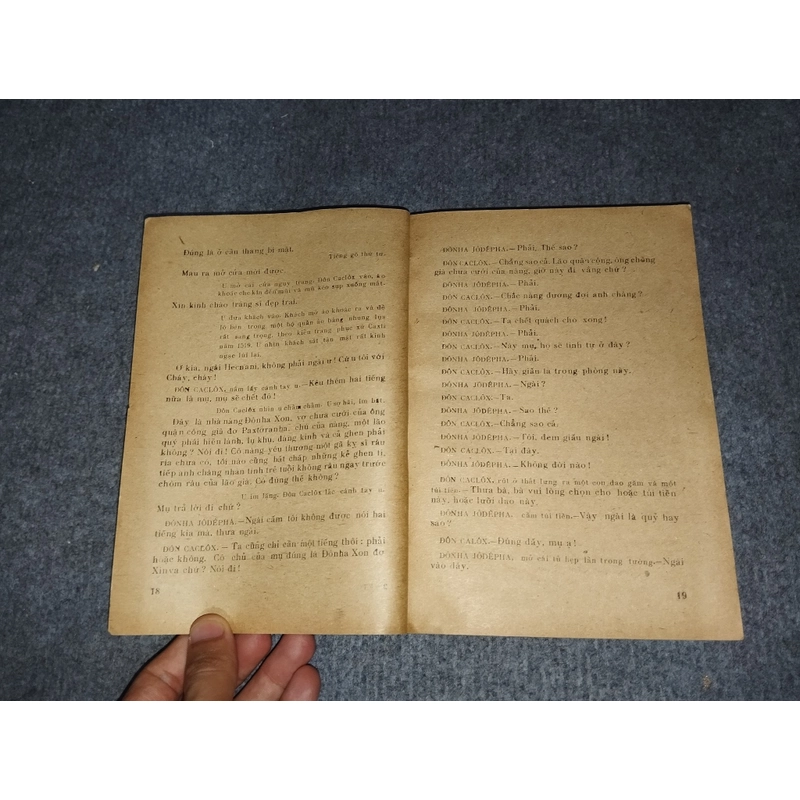 Đúng là ở cầu thang bí mật.
Tiếng gõ thứ tư.
Mau ra mở cửa mới được
U mở cái cửa nguy trang. Đôn Caclôx vào, áo
khoác che kín đến mắt và mũ kéo sụp xuống mặt.
Xin kính chào tráng sĩ đẹp trai.
U đưa khách vào. Khách mở áo khoác ra và để
lộ bên trong một bộ quần áo bằng nhung lụa
rất sang trọng, theo kiểu trang phục xứ Caxti
năm 1519. U nhìn khách sát tận mặt rồi kinh
ngạc lùi lại.
Ơ kìa, ngài Hecnani, không phải ngài ư! Cứu tôi với
Cháy, cháy!
ĐÔN CACLÔX, nắm lấy cánh tay u.—Kêu thêm hai tiếng
nữa là mụ, mụ sẽ chết đó!
Đôn Caclôx nhìn u chằm chằm. U sợ hãi, im bặt.
Đây là nhà nàng Đônha Xon, vợ chưa cưới của ông
quận công già đơ Paxtoranha, chú của nàng, một lão
quý phái hiền lành, lụ khụ, đáng kính và cả ghen phải
không? Nói đi! Cô nàng yêu thương một gã kỵ sĩ râu
ria chưa có, tối nào cũng bất chấp những kẻ ghen tị,
tiếp anh chàng nhân tình trẻ tuổi không râu ngay trước
chòm râu của lão già. Có đúng thế không?
U im lặng. Đôn Caclôx lắc cánh tay u.
Mụ trả lời đi chứ?
ĐÔNHA JÔDÊPHA.—Ngài cấm tôi không được nói hai
tiếng kia mà, thưa ngài.
ĐÔN CACLÔX. — Ta cũng chỉ cần một tiếng thôi: phải
hoặc không. Cô chủ của mụ đúng là Đônha Xon đơ
Xinva chứ? Nói đi!
18
ĐÔNHA JÔDÊPHA.—Phải, Thế sao?
ĐÔN CACLÔX.—Chẳng sao cả. Lão quận công, ông chồng
già chưa cưới của nàng, giờ này đi vắng chứ?
ĐÔNHA JÔDÊPHA.—Phải.
ĐÔN CACLÔX.—Chắc nàng đương đợi anh chàng?
ĐÔNHA JÔDÊPHA.—Phải.
ĐÔN CACLÔX.—Ta chết quách cho xong!
ĐÔNHA JÔDÊPHA.—Phải.
ĐÔN CACLÔX.—Này mụ, họ sẽ tình tự ở đây?
ĐÔNHA JÔDÊPHA.—Phải.
ĐÔN CACLÔX.—Hãy giấu ta trong phòng này.
ĐÔNHA JÔDÊPHA.—Ngài?
ĐÔN CACLÔX.—Ta.
ĐÔNHA JÔDÊPHA.—Sao thế?
ĐÔN CACLÔX.—Chẳng sao cả.
ĐÔNHA JÔDÊPHA.—Tôi, đem giấu ngài!
ĐÔN CACLÔX.—Tại đây.
ĐÔNHA JÔDÊPHA.—Không đời nào!
ĐÔN CACLÔX, rút ở thắt lưng ra một con dao găm và một
túi tiền.—Thưa bà, bà vui lòng chọn cho hoặc túi tiền
này, hoặc lưỡi dao này.
ĐÔNHA JÔDÊPHA, cầm túi tiền.—Vậy ngài là quỷ hay
sao?
ĐÔN CALÔX.—Đúng đấy, mụ ạ!
ĐÔNHA JÔDÊPHA, mở cái tủ hẹp lẩn trong tường.—Ngài
vào đây.
19